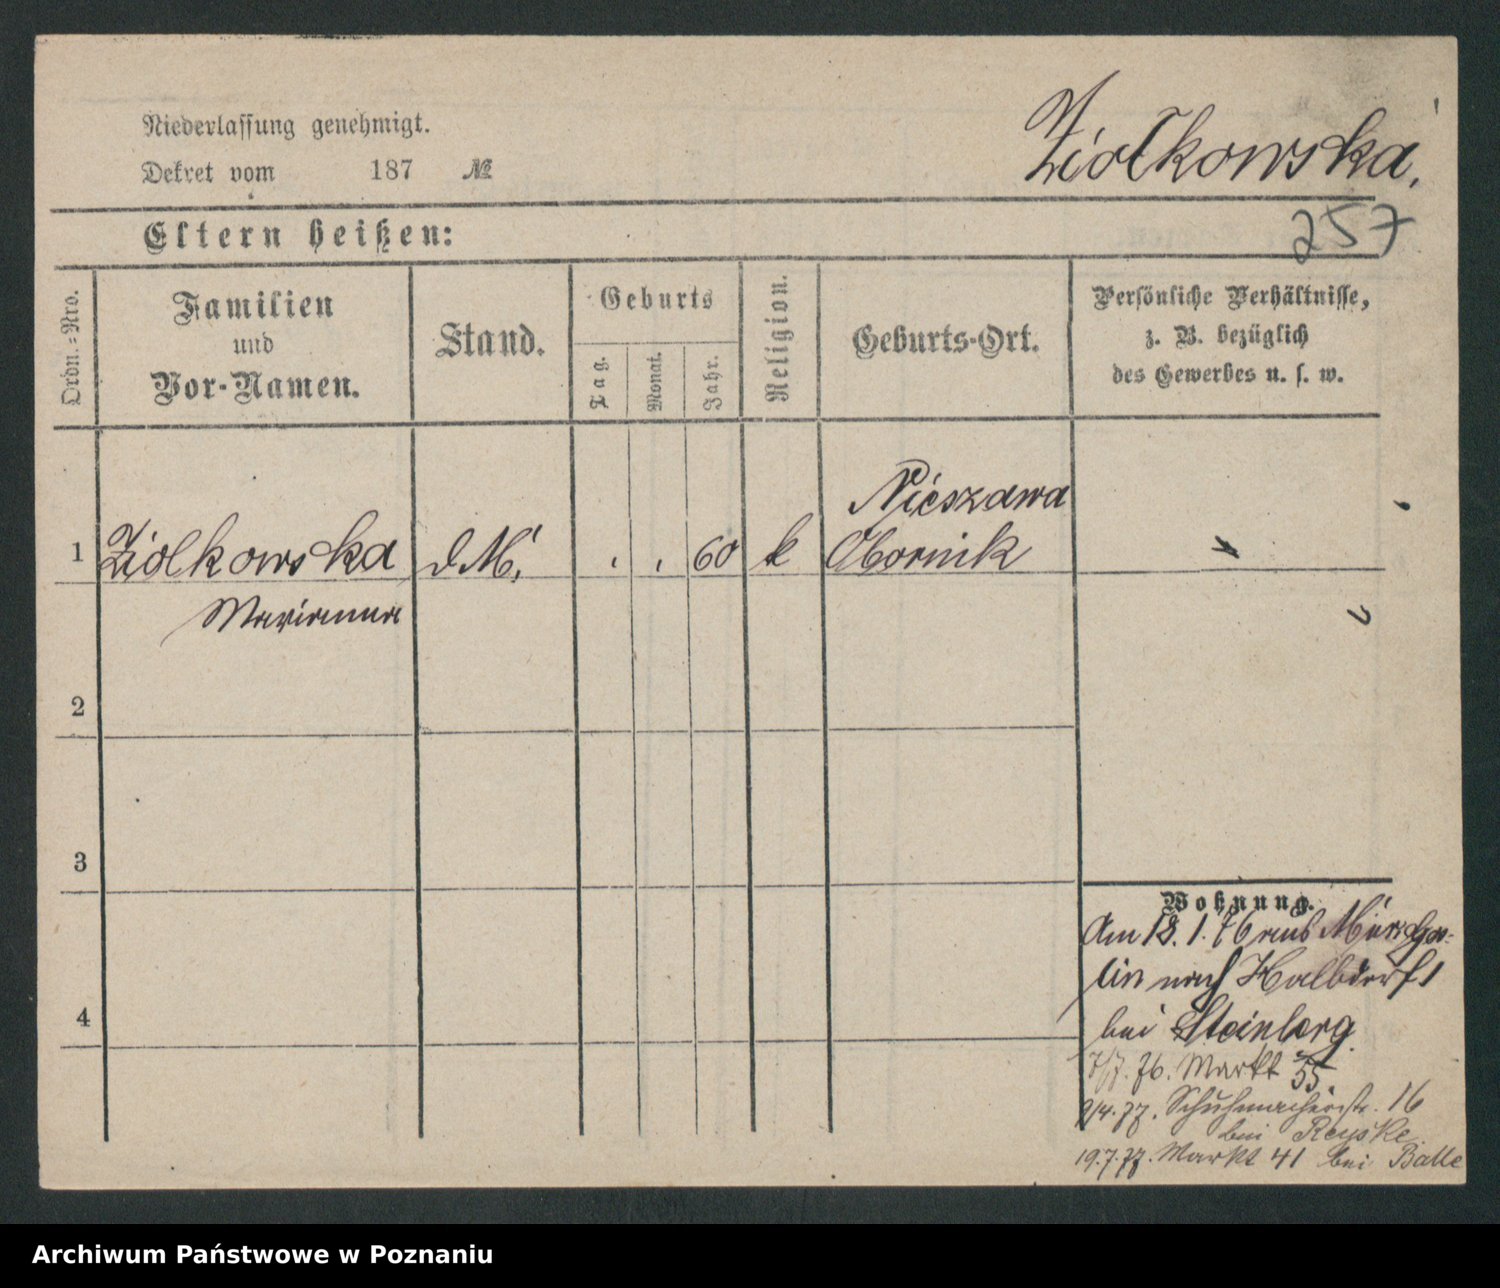 Niederlassung genehmigt.
Dekret vom 187 №
Ziolkowska.
257
Eltern heißen:
Ordn.=Nro.
Familien
und
Vor-Namen.
Stand.
Geburts
Tag.
Monat.
Jahr.
Religion.
Geburts-Ort.
Persönliche Verhältnisse,
z. B. bezüglich
des Gewerbes u. s. w.
Nieszawa
1 Ziolkowska d M. 60 k Obornik
Marianna
2
3
4
Wohnung.
Am 18. 1. 76 aus
lin nach Halbdorf 1
bei Steinberg
7/7. 76. Markt 55
2/4. 77. Schuhmacherstr. 16
bei Reyske
19.7.77. Markt 41 bei
Archiwum Państwowe w Poznaniu